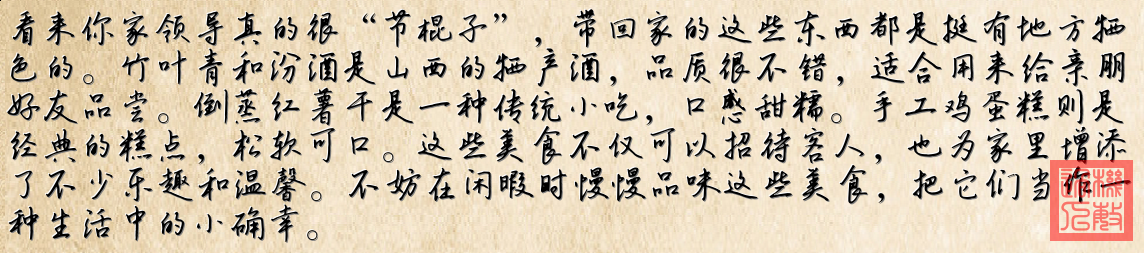 看来你家领导真的很“节棍子”，带回家的这些东西都是挺有地方特
色的。竹叶青和汾酒是山西的特产酒，品质很不错，适合用来给亲朋
好友品尝。倒蒸红薯干是一种传统小吃，口感甜糯。手工鸡蛋糕则是
经典的糕点，松软可口。这些美食不仅可以招待客人，也为家里增添
了不少乐趣和温馨。不妨在闲暇时慢慢品味这些美食，把它们当作一
种生活中的小确幸。